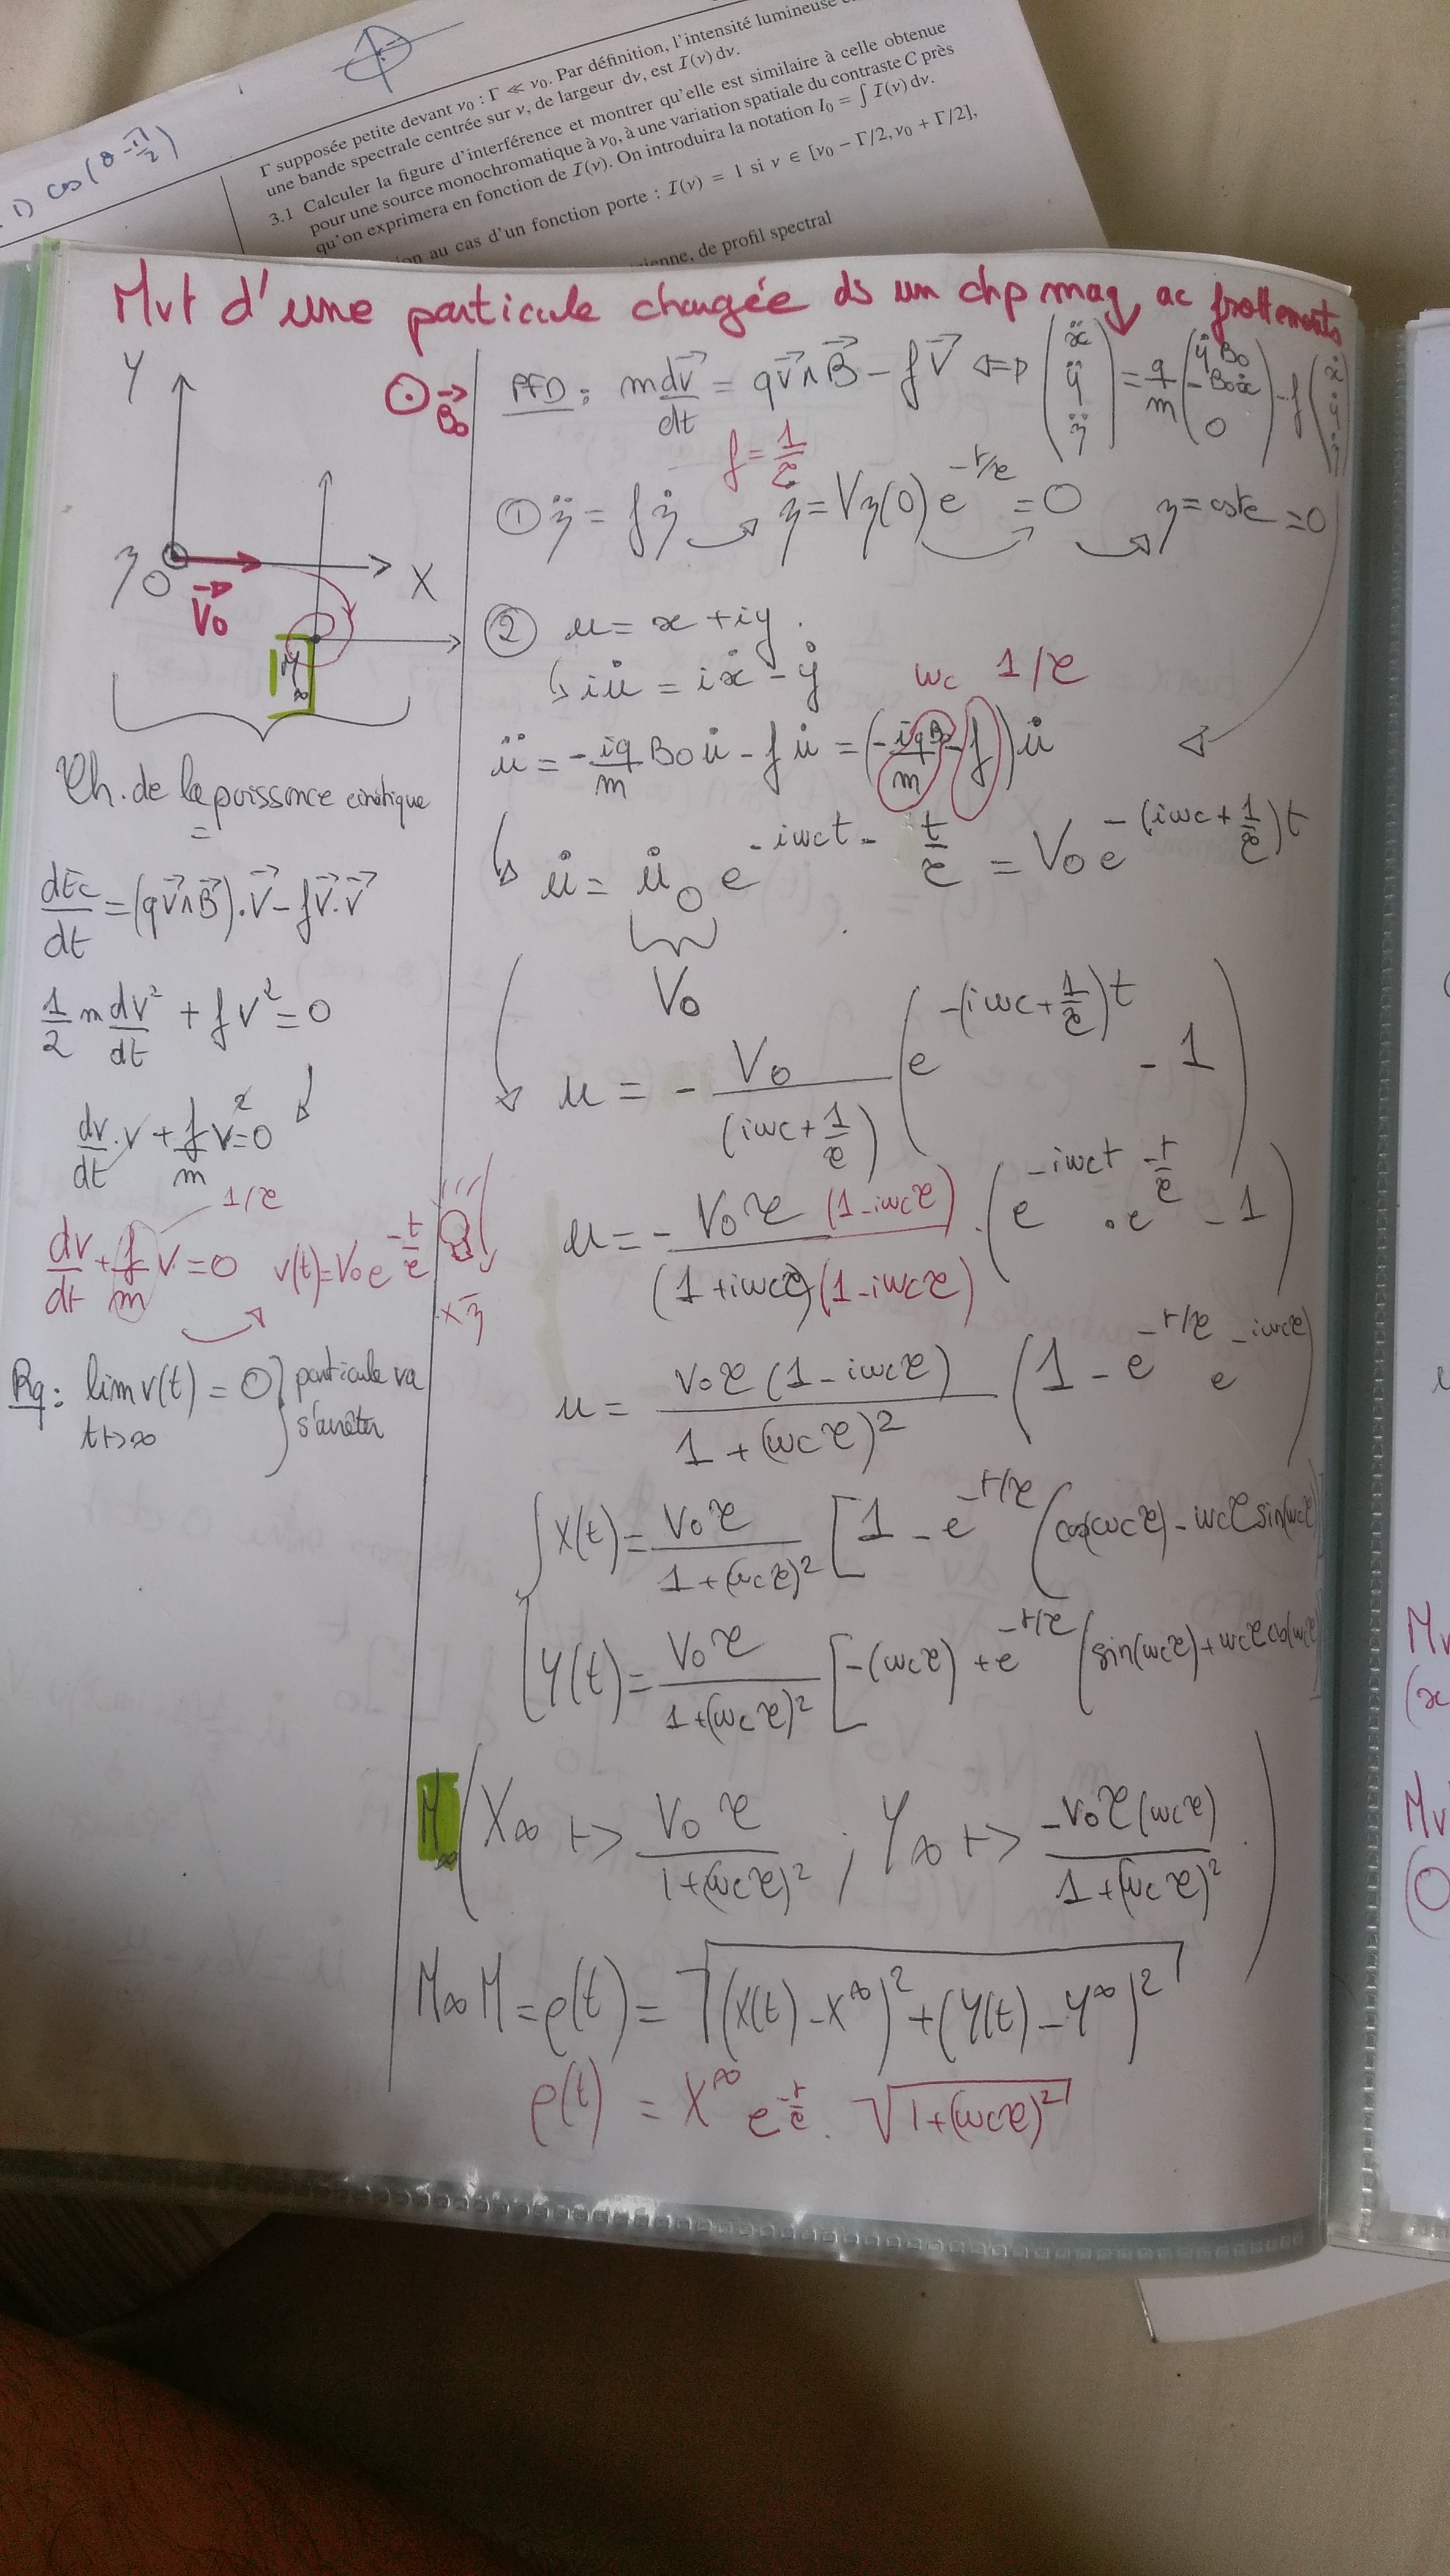 1) cos(θ-π/2)
Γ supposée petite devant ν₀ : Γ ≪ ν₀. Par définition, l'intensité lumineuse
une bande spectrale centrée sur ν, de largeur dν, est I(ν) dν.
3.1 Calculer la figure d'interférence et montrer qu'elle est similaire à celle obtenue
pour une source monochromatique à ν₀, à une variation spatiale du contraste C près
qu'on exprimera en fonction de I(ν). On introduira la notation I₀ = ∫ I(ν) dν.
au cas d'un fonction porte : I(ν) = 1 si ν ∈ [ν₀ − Γ/2, ν₀ + Γ/2],
, de profil spectral
Mvt d'une particule chargée ds un chp mag, ac frottements
Y
⊙ B₀
z O
V₀
X
M∞
Th. de la puissance cinétique
dEc/dt = (qV∧B).V − fV.V
1/2 m dv²/dt + fv² = 0
dv/dt . v + f/m v² = 0
1/τ
dv/dt + f/m v = 0 v(t) = V₀e^(-t/τ)
Rq : lim v(t) = 0 } particule va
t↦∞ s'arrêter
PFD : m dv/dt = qV∧B − fV ⇔ (ẍ ÿ z̈) = q/m (ẏB₀ −B₀ẋ 0) − f (ẋ ẏ ż)
f = 1/τ
① z̈ = fż ż = Vz(0) e^(-t/τ) = 0 z = cste = 0
② u = x + iy.
↳ iu̇ = iẋ − ẏ
ωc 1/τ
ü = −iq/m B₀u̇ − fu̇ = (−iqB₀/m − f) u̇
↳ u̇ = u̇₀ e^(-iωct - t/τ) = V₀e^(-(iωc + 1/τ)t)
V₀
u = − V₀/(iωc + 1/τ) (e^(-(iωc + 1/τ)t) − 1)
u = − V₀τ (1−iωcτ)/(1+iωcτ)(1−iωcτ) . (e^(-iωct) . e^(-t/τ) − 1)
× z̄
u = V₀τ(1−iωcτ)/1+(ωcτ)² (1 − e^(-t/τ) e^(-iωcτ)
X(t) = V₀τ/1+(ωcτ)² [1 − e^(-t/τ) (cos(ωcτ) − ωcτ sin(ωcτ)
Y(t) = V₀τ/1+(ωcτ)² [−(ωcτ) + e^(-t/τ) (sin(ωcτ) + ωcτ cos(ωcτ)
M∞ (X∞ ↦ V₀τ/1+(ωcτ)² ; Y∞ ↦ −V₀τ(ωcτ)/1+(ωcτ)² )
M∞M = ρ(t) = √((X(t) − X∞)² + (Y(t) − Y∞)²)
ρ(t) = X∞ e^(-t/τ) . √(1+(ωcτ)²)